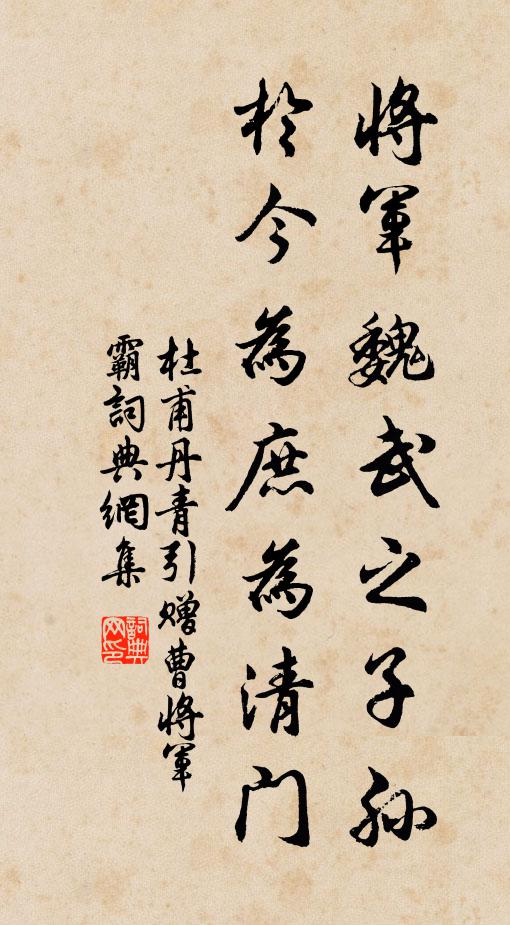 將軍魏武之子孫
於今為庶為清門
杜甫丹青引贈曹將軍
霸詞典網集
詞典網印